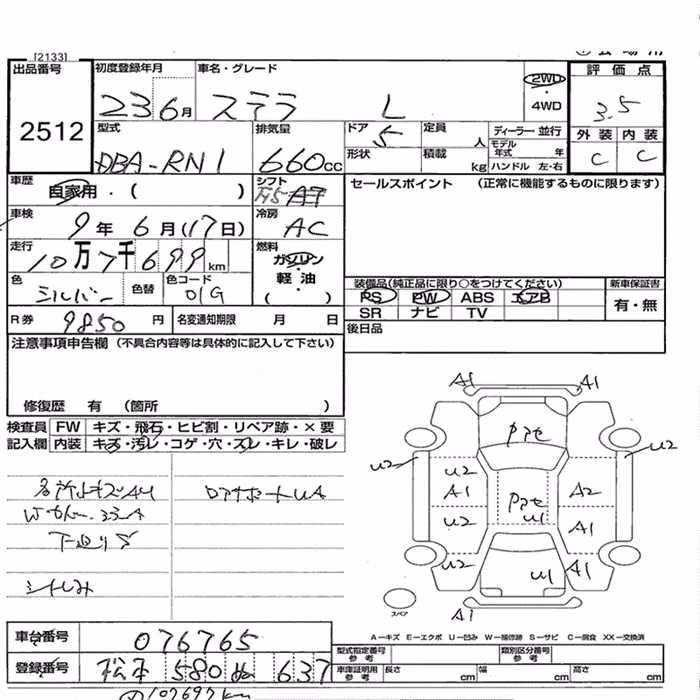 [2133]
出品番号 2512
初度登録年月 23 6月
車名・グレード ステラ L
2WD ・ 4WD
評価点 3.5
外装 C 内装 C
型式 DBA-RN1
排気量 660cc
ドア 5
定員 人
ディーラー 並行
形状
積載 kg
モデル年式 年
ハンドル 左・右
車歴 自家用・( )
シフト
車検 9年 6月(17日)
冷房 AC
走行 10万7千699km
燃料 ガソリン 軽油 ( )
色 シルバー 色替
色コード 01G
R券 9850円
名変通知期限 月 日
セールスポイント (正常に機能するものに限ります)
装備品(純正品に限り○をつけてください)
PS PW ABS エアB
SR ナビ TV
新車保証書 有・無
後日品
注意事項申告欄 (不具合内容等は具体的に記入して下さい)
修復歴 有 (箇所 )
検査員記入欄
FW キズ・飛石・ヒビ割・リペア跡・×要
内装 キズ・汚レ・コゲ・穴・スレ・キレ・破レ
下廻りS
A1 A1
U2 U2
U2 A1 A2
U2 A1
U1
U2 U1 A1
A1
スペア
A-キズ E-エクボ U-凹み W-補修跡 S-サビ C-腐食 XX-交換済
車台番号 076765
登録番号 松本 580 ぬ 637
型式指定番号 参考
類別区分番号 参考
車庫証明用 参考 長さ cm 幅 cm 高さ cm